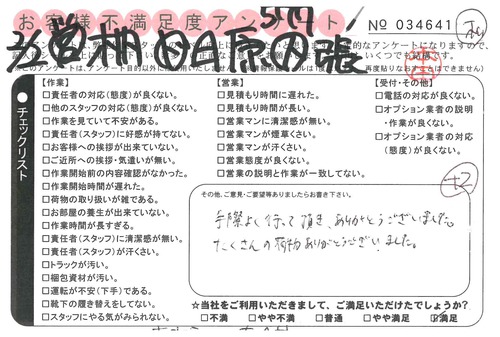 お客様不満足度アンケート
No 034641
チェックリスト
【作業】
□責任者の対応(態度)が良くない。
□他のスタッフの対応(態度)が良くない。
□作業を見ていて不安がある。
□責任者(スタッフ)に好感が持てない。
□お客様への挨拶が出来ていない。
□ご近所への挨拶・気遣いが無い。
□作業開始前の内容確認がなかった。
□作業開始時間が遅れた。
□荷物の取り扱いが雑である。
□お部屋の養生が出来ていない。
□作業時間が長すぎる。
□責任者(スタッフ)に清潔感が無い。
□責任者(スタッフ)が汗くさい。
□トラックが汚い。
□梱包資材が汚い。
□運転が不安(下手)である。
□靴下の履き替えをしてない。
□スタッフにやる気がみられない。
【営業】
□見積もり時間に遅れた。
□見積もり時間が長い。
□営業マンに清潔感が無い。
□営業マンが煙草くさい。
□営業マンが汗くさい。
□営業態度が良くない。
□営業の説明と作業が一致してない。
【受付・その他】
□電話の対応が良くない。
□オプション業者の説明
・作業が良くない。
□オプション業者の対応
(態度)が良くない。
その他、ご意見・ご要望等ありましたらお書き下さい。
手際よく行って頂き、ありがとうございました。
たくさんの荷物ありがとうございました。
☆当社をご利用いただきまして、ご満足いただけたでしょうか?
□不満 □やや不満 □普通 □やや満足 ☑満足